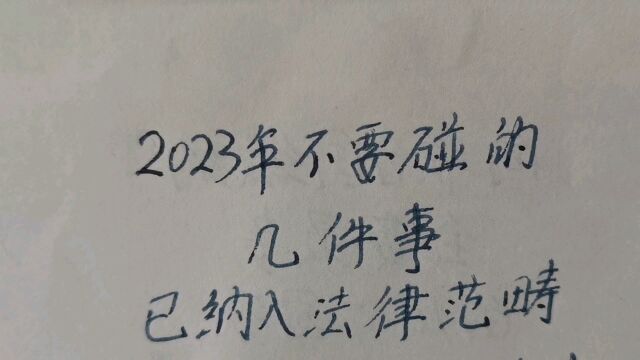 2023年不要碰的
几件事
已纳入法律范畴